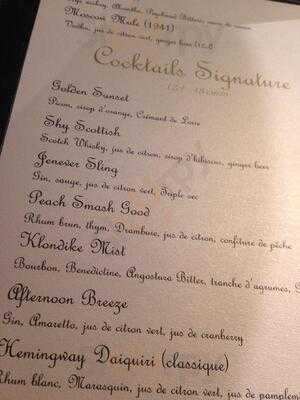 Moscow Mule (1941)
Vodka, jus de citron vert, ginger beer
Cocktails Signature
Golden Sunset
sirop d'orange, Crémant de Loire
Shy Scottish
Scotch Whisky, jus de citron, sirop d'hibiscus, ginger beer
Jenever Sling
Gin, sauge, jus de citron vert, Triple sec
Peach Smash Good
Rhum brun, thym, Drambuie, jus de citron, confiture de pêche
Klondike Mist
Bourbon, Benedictine, Angostura Bitter, tranche d'agrumes,
Afternoon Breeze
Gin, Amaretto, jus de citron vert, jus de cranberry
Hemingway Daiquiri (classique)
Rhum blanc, Marasquin, jus de citron vert, jus de